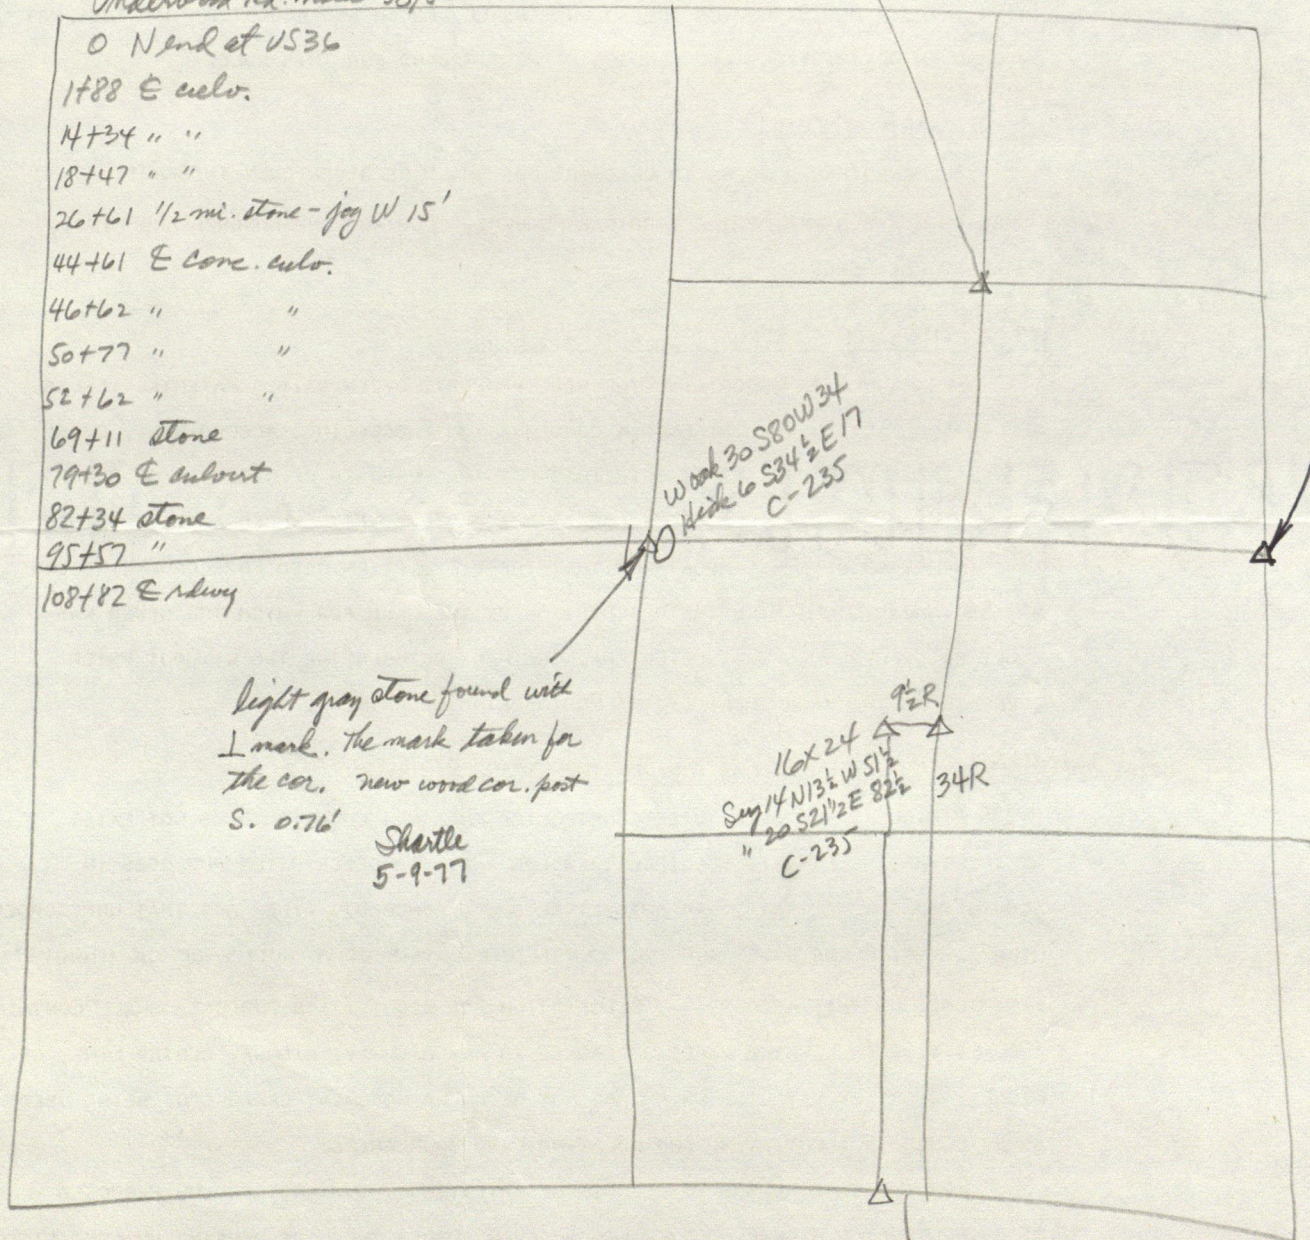 Underwood Rd.
0 N end at US36
1+88 ℄ culv.
14+34 " "
18+47 " "
26+61 1/2 mi. stone - jog W 15'
44+61 ℄ conc. culv.
46+62 " "
50+77 " "
52+62 " "
69+11 stone
79+30 ℄ culvert
82+34 stone
95+57 "
108+82 ℄ rdwy
W oak 30 S80W34
Hick 6 S34½E17
C-235
light gray stone found with
⊥ mark. The mark taken for
the cor. new wood cor. post
S. 0.76'
Shartle
5-9-77
9½R
34R
16x24
Sug 14 N13½W 51½
" 20 S21½E 82½
C-235